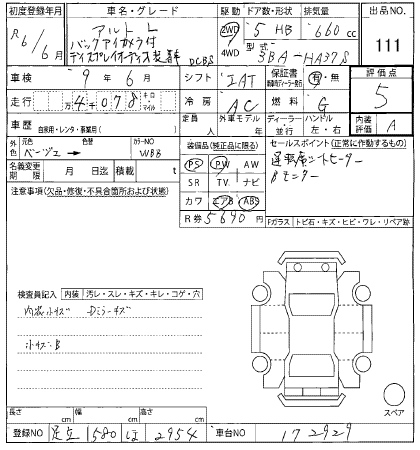 初度登録年月 車名・グレード 駆動 ドア数・形状 排気量 出品NO
R 6/6月 アルト L 2WD 4WD 5 HB 660 cc 111
バックアイカメラ付
ディスプレイオーディオ装着車 DCBS 型式 3BA-HA37S
車検 9年 6月 シフト IAT 保証書 有・無 評価点
走行 万4千078 キロ・マイル 冷房 AC 燃料 G 5
車歴 自家用・レンタ・事業用( ) 定員 人 外車モデル 年 ディーラー・並行 ハンドル 左・右 内装評価 A
外色 元色 ベージュ→ 色替 カラーNO WBB
装備品(純正品に限る) セールスポイント(正常に作動するもの)
名義変更期限 月 日迄 積載 t
PS PW AW 運転席シートヒーター
SR TV ナビ Bモニター
カワ エアB ABS
注意事項(欠品・修復・不具合箇所および状態)
R券 5690 円
Fガラス トビ石・キズ・ヒビ・ワレ・リペア跡
検査員記入 内装 汚レ・スレ・キズ・キレ・コゲ・穴
内装小キズ Dミラーキズ
小キズB
スペア
長さ cm 幅 cm 高さ cm
登録NO 足立 1580 ほ 2954 車台NO 172929